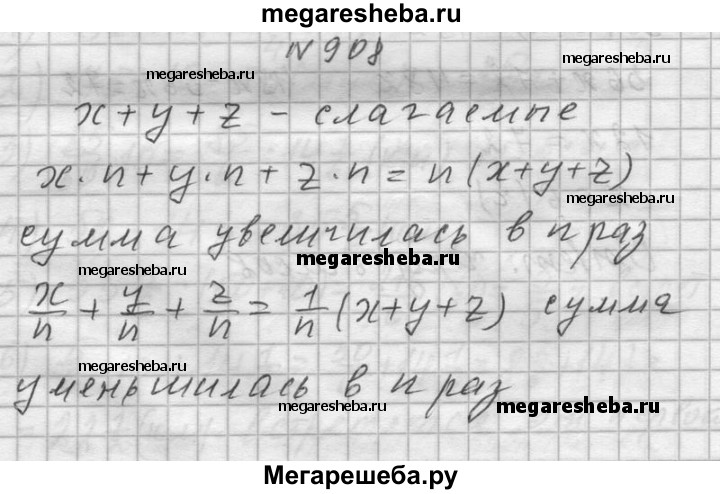 megaresheba.ru
N 908
megaresheba.ru
megaresheba.ru
x + y + z - слагаемые
megaresheba.ru
x · n + y · n + z · n = n (x+y+z)
megaresheba.ru
сумма увеличилась в n раз
megaresheba.ru
megaresheba.ru
x/n + y/n + z/n = 1/n (x+y+z) сумма
megaresheba.ru
megaresheba.ru
уменьшилась в n раз
megaresheba.ru
Мегарешеба.ру